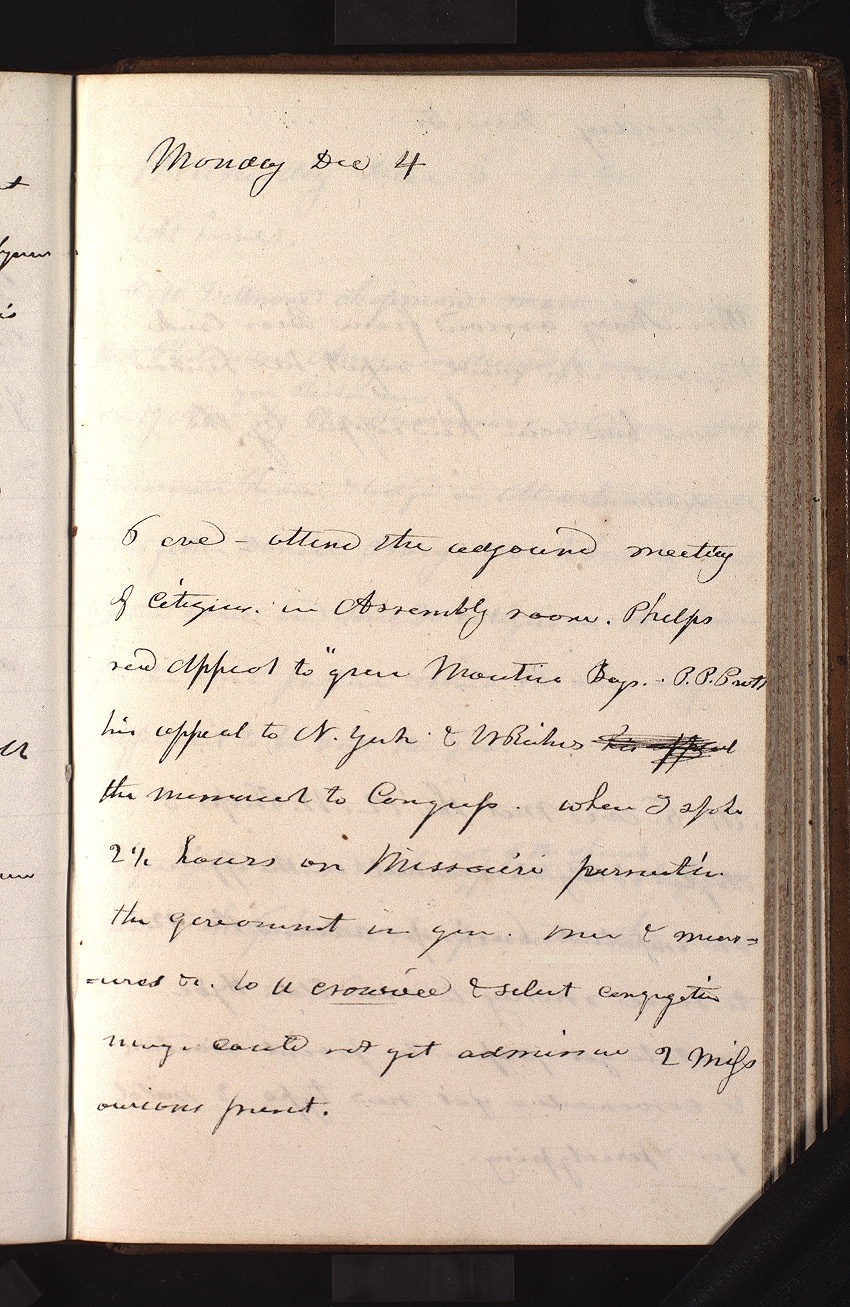 Monday Dec 4
6 eve - attend the adjournd meeting
of Citizens. in Assembly room. Phelps
read Appeal to "green Mountin Boys. - P.P. Pratt
his appeal to N. York. & WRichds his appeal
the memorial to Congress. when I spoke
2½ hours on Missouri persecutin.
the government in gen. men & meas=
=ures &c. to a crowded & select congregatin
many could not get admission 2 Miss
ourions present.